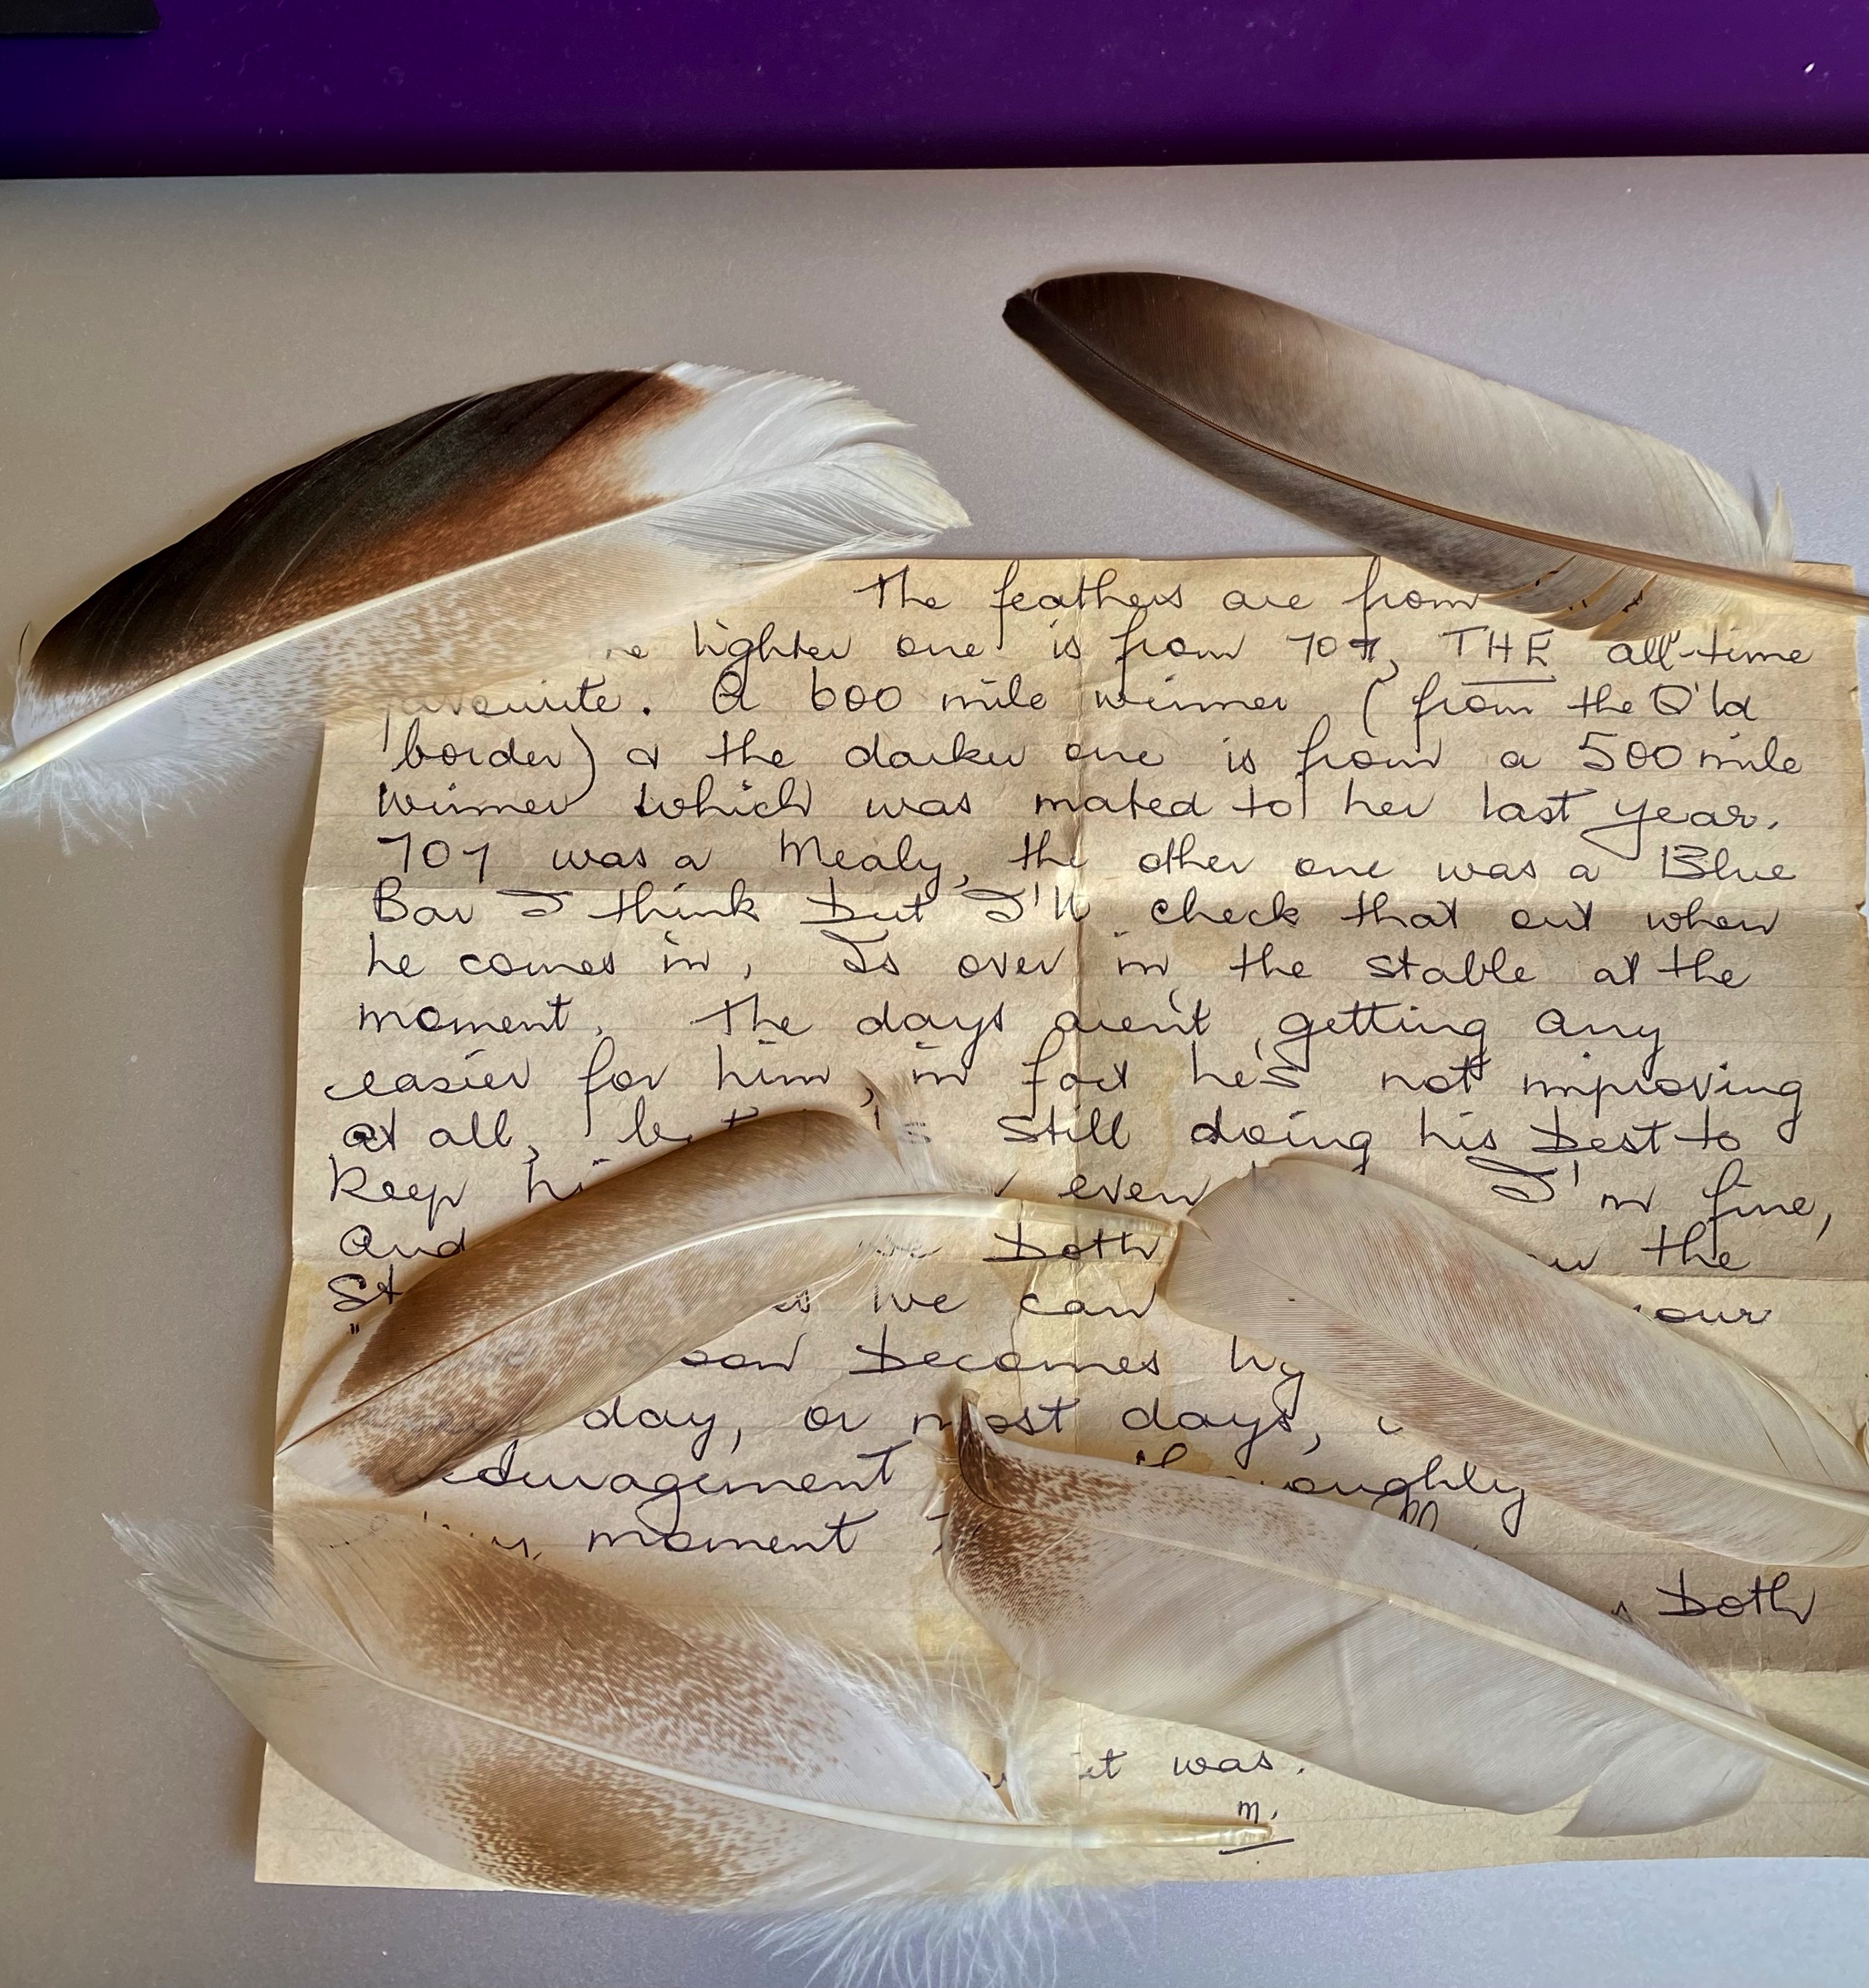 The feathers are from
lighter one is from 707, THE all-time
favourite. A 600 mile winner (from the Q'ld
border) & the darker one is from a 500 mile
winner which was mated to her last year.
707 was a Mealy, the other one was a Blue
Bar I think but I'll check that out when
he comes in, Is over in the stable at the
moment. The days aren't getting any
easier for him, in fact he's not improving
at all, still doing his best to
keep even I'm fine,
and both the
we can your
soon becomes
day, or most days,
thoroughly
moment
both
it was.
m.